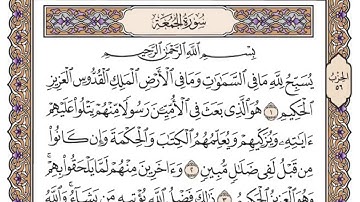 سُورَةُ الجُمُعَةِ
بِسْمِ اللَّهِ الرَّحْمَٰنِ الرَّحِيمِ
يُسَبِّحُ لِلَّهِ مَا فِي السَّمَٰوَٰتِ وَمَا فِي الْأَرْضِ الْمَلِكِ الْقُدُّوسِ الْعَزِيزِ
الْحَكِيمِ ١ هُوَ الَّذِي بَعَثَ فِي الْأُمِّيِّـۧنَ رَسُولًا مِّنْهُمْ يَتْلُوا۟ عَلَيْهِمْ
ءَايَٰتِهِۦ وَيُزَكِّيهِمْ وَيُعَلِّمُهُمُ الْكِتَٰبَ وَالْحِكْمَةَ وَإِن كَانُوا۟
مِن قَبْلُ لَفِي ضَلَٰلٍ مُّبِينٍ ٢ وَءَاخَرِينَ مِنْهُمْ لَمَّا يَلْحَقُوا۟ بِهِمْ ۚ
وَهُوَ الْعَزِيزُ الْحَكِيمُ ٣ ذَٰلِكَ فَضْلُ اللَّهِ يُؤْتِيهِ مَن يَشَآءُ ۚ وَاللَّهُ
الحِزْبُ
٥٦